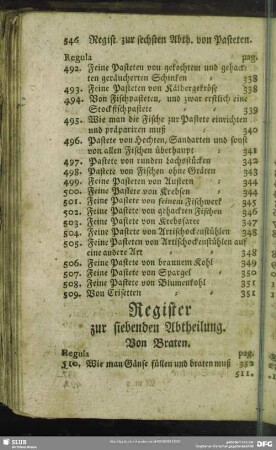 546 Regist. zur sechsten Abth. von Pasteten.
Regula pag.
492. Feine Pasteten von gekochtem und gehack-
ten geräucherten Schinken 338
493. Feine Pasteten von Kälbergekröse 338
494. Von Fischpasteten, und zwar erstlich eine
Stockfischpastete 339
495. Wie man die Fische zur Pastete einrichten
und präpariren muß 340
496. Pastete von Hechten, Sandarten und sonst
von allen Fischen überhaupt 341
497. Pastete von runden Lachsstücken 342
498. Pastete von Fischen ohne Gräten 343
499. Feine Pasteten von Austern 344
500. Feine Pasteten von Krebsen 344
501. Feine Pastete von feinem Fischwerk 345
502. Feine Pastete von gehackten Fischen 346
503. Feine Pastete von Krebsfarce 347
504. Feine Pastete von Artischockenstühlen 348
505. Feine Pasteten von Artischockenstühlen auf
eine andere Art 348
506. Feine Pastete von braunem Kohl 349
507. Feine Pastete von Spargel 350
508. Feine Pastete von Blumenkohl 351
509. Von Crisetten 351
Register
zur siebenden Abtheilung.
Von Braten.
Regula pag.
510. Wie man Gänse füllen und braten muß 352
511.
SLUB
DFG